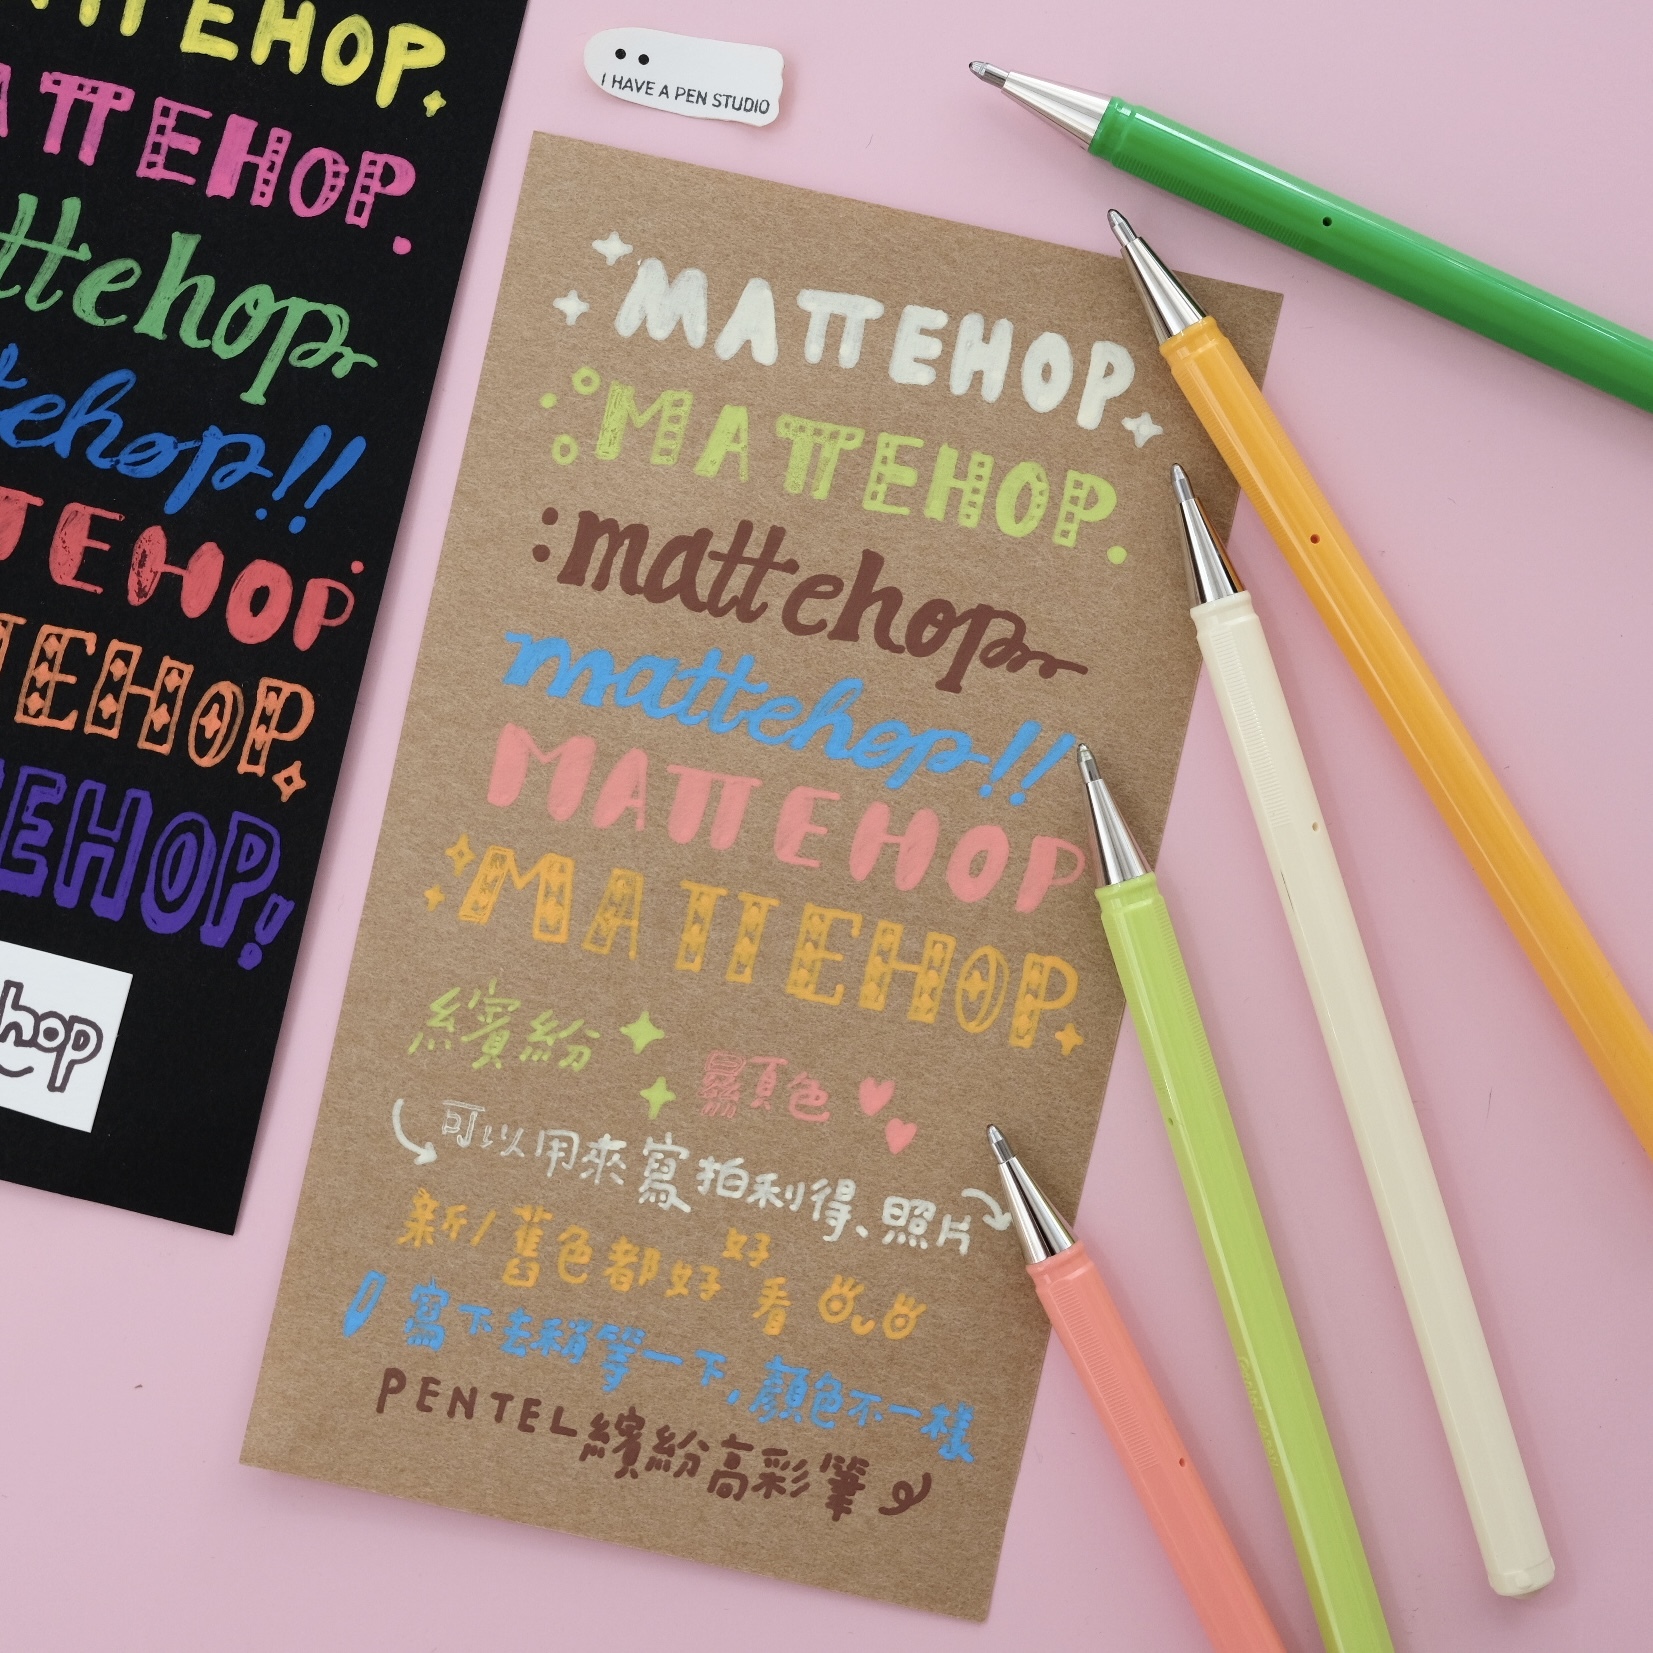 I HAVE A PEN STUDIO
ATTEHOP.
ATTEHOP.
ttehop
tehop!!
TEHOP
TEHOP.
EHOP!
hop
MATTEHOP.
MATTEHOP.
mattehop
mattehop!!
MATTEHOP
MATTEHOP.
繽紛
顯色
可以用來寫拍利得、照片
新/舊色都好好看
寫下去稍等一下,顏色不一樣
PENTEL繽紛高彩筆